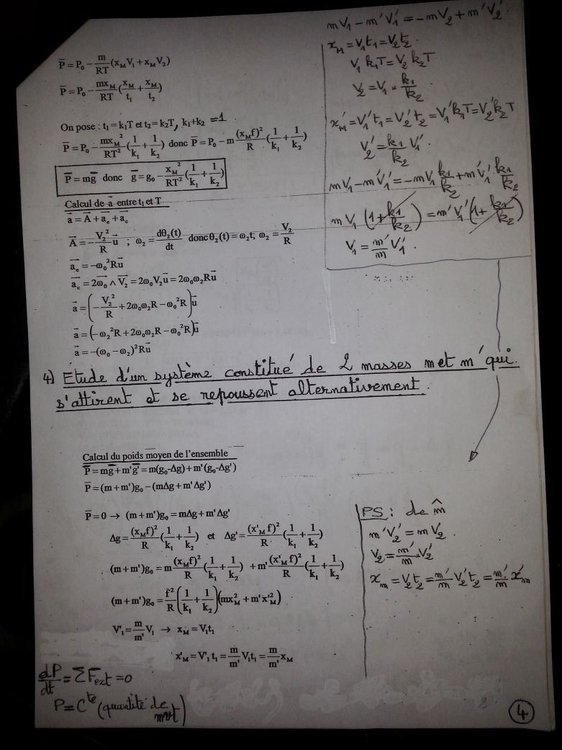 P̄ = P₀ − m/RT (x_M V₁ + x_M V₂)
P̄ = P₀ − mx_M/RT (x_M/t₁ + x_M/t₂)
On pose : t₁ = k₁T et t₂ = k₂T, k₁+k₂ = 1
P̄ = P₀ − mx_M²/RT² (1/k₁ + 1/k₂) donc P̄ = P₀ − m (x_M f)²/R (1/k₁ + 1/k₂)
P̄ = mḡ donc ḡ = g₀ − x_M²/RT² (1/k₁ + 1/k₂)
Calcul de a⃗ entre t₁ et T
a⃗ = A⃗ + a⃗ₑ + a⃗c
A⃗ = −V₂²/R u⃗ ; ω₂ = dθ₂(t)/dt donc θ₂(t) = ω₂t, ω₂ = V₂/R
a⃗ₑ = −ω₀²Ru⃗
a⃗c = 2ω⃗₀ ∧ V⃗₂ = 2ω₀V₂u⃗ = 2ω₀ω₂Ru⃗
a⃗ = (−V₂²/R + 2ω₀ω₂R − ω₀²R)u⃗
a⃗ = (−ω₂²R + 2ω₀ω₂R − ω₀²R)u⃗
a⃗ = −(ω₀ − ω₂)²Ru⃗
mV₁ − m'V'₁ = −mV₂ + m'V'₂
x_M = V₁t₁ = V₂t₂
V₁k₁T = V₂k₂T
V₂ = V₁ k₁/k₂
x'_M = V'₁t₁ = V'₂t₂ = V'₁k₁T = V'₂k₂T
V'₂ = k₁/k₂ V'₁
mV₁ − m'V'₁ = −mV₁ k₁/k₂ + m'V'₁ k₁/k₂
mV₁ (1 + k₁/k₂) = m'V'₁ (1 + k₁/k₂)
V₁ = m'/m V'₁
4) Etude d'un système constitué de 2 masses m et m' qui
s'attirent et se repoussent alternativement.
Calcul du poids moyen de l'ensemble
P̄ = mḡ + m'ḡ' = m(g₀-Δg) + m'(g₀-Δg')
P̄ = (m + m')g₀ − (mΔg + m'Δg')
P̄ = 0 → (m + m')g₀ = mΔg + m'Δg'
Δg = (x_M f)²/R (1/k₁ + 1/k₂) et Δg' = (x'_M f)²/R (1/k₁ + 1/k₂)
(m + m')g₀ = m (x_M f)²/R (1/k₁ + 1/k₂) + m' (x'_M f)²/R (1/k₁ + 1/k₂)
(m + m')g₀ = f²/R (1/k₁ + 1/k₂)(mx²_M + m'x'²_M)
V'₁ = m/m' V₁ → x_M = V₁t₁
x'_M = V'₁t₁ = m/m' V₁t₁ = m/m' x_M
PS : de m̂
m'V'₂ = mV₂
V₂ = m'/m V'₂
x_m = V₂t₂ = m'/m V'₂t₂ = m'/m x'_m
dP/dt = ΣF_ext = 0
P = Cᵗᵉ (quantité de mvt)
4